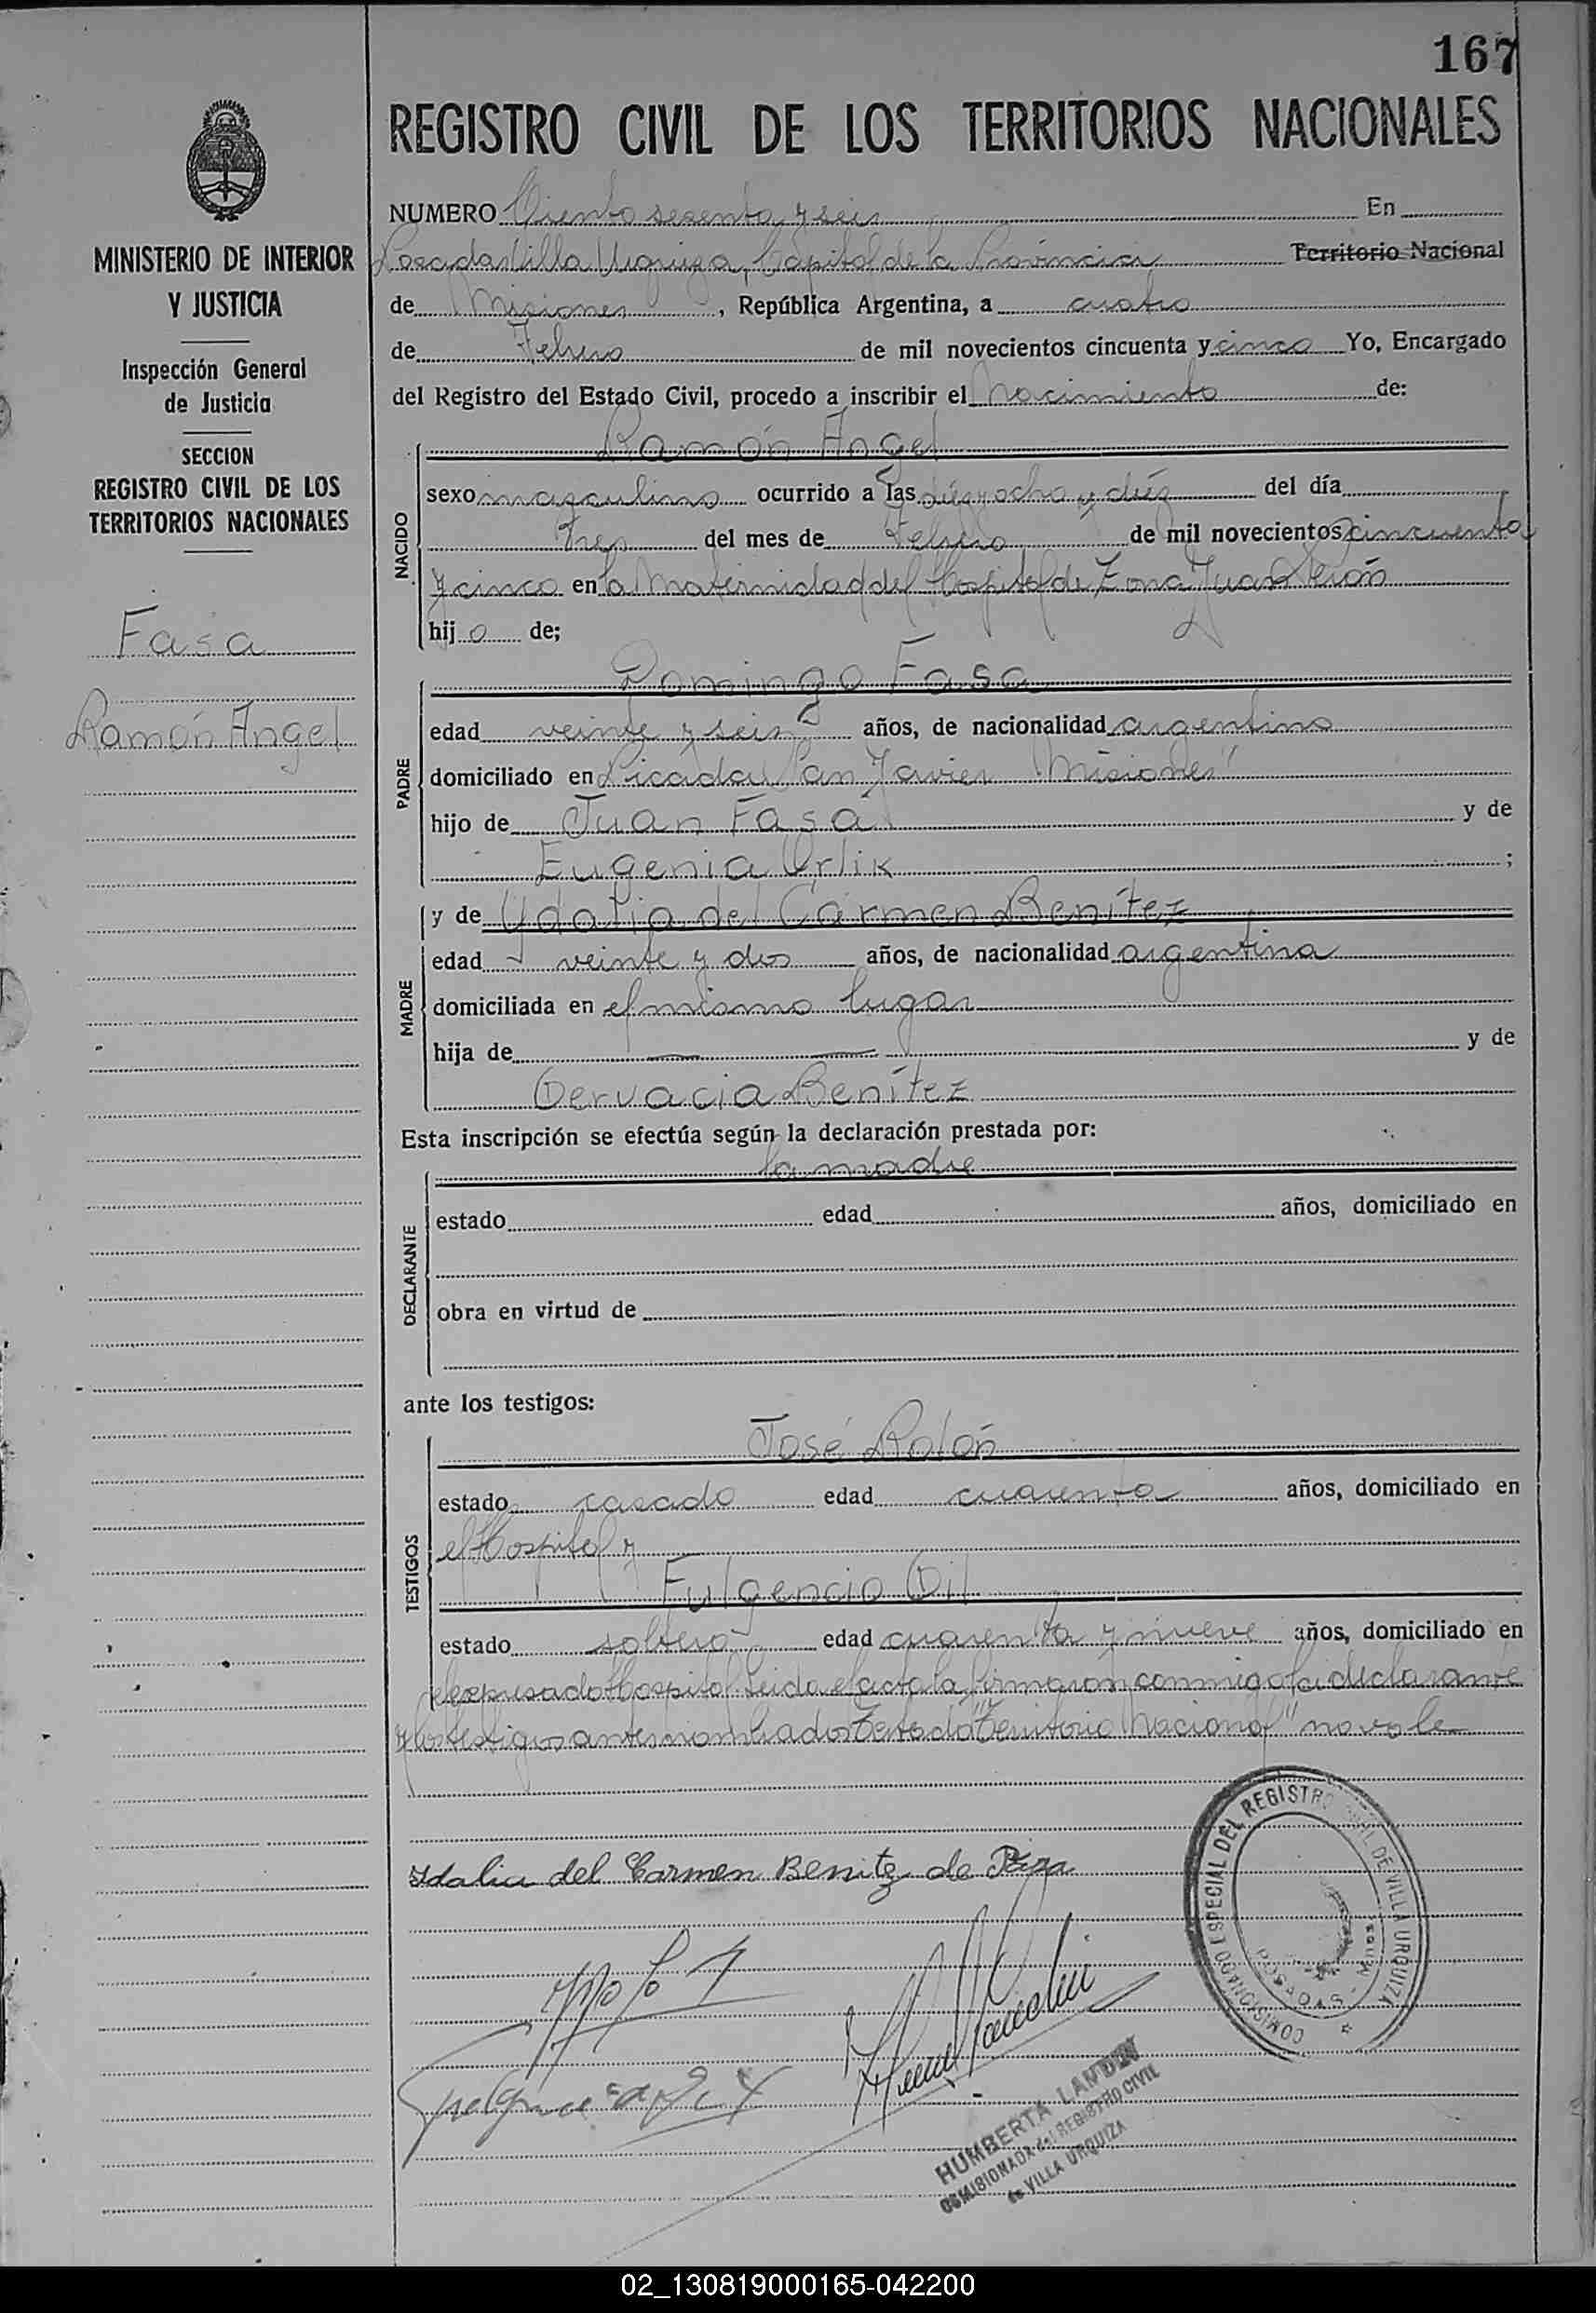 167
REGISTRO CIVIL DE LOS TERRITORIOS NACIONALES
MINISTERIO DE INTERIOR
Y JUSTICIA
Inspección General
de Justicia
SECCION
REGISTRO CIVIL DE LOS
TERRITORIOS NACIONALES
Fasa
Ramón Angel
NUMERO Ciento sesenta y seis En
Posadas Villa Urquiza, Capital de la Provincia Territorio Nacional
de Misiones, República Argentina, a cuatro
de Febrero de mil novecientos cincuenta y cinco Yo, Encargado
del Registro del Estado Civil, procedo a inscribir el Nacimiento de:
NACIDO
Ramón Angel
sexo masculino ocurrido a las diez y ocho y diez del día
Tres del mes de Febrero de mil novecientos cincuenta
y cinco en la Maternidad del Hospital de Zona Juan Perón
hijo de;
PADRE
Domingo Fasa
edad veinte y seis años, de nacionalidad argentino
domiciliado en Picada San Javier "Misiones"
hijo de Juan Fasa y de
Eugenia Orlik ;
MADRE
y de Ydalia del Carmen Benítez
edad veinte y dos años, de nacionalidad argentina
domiciliada en el mismo lugar
hija de y de
Gervacia Benítez
Esta inscripción se efectúa según la declaración prestada por:
DECLARANTE
la madre
estado edad años, domiciliado en
obra en virtud de
ante los testigos:
TESTIGOS
José Rolón
estado casado edad cuarenta años, domiciliado en
el Hospital y
Fulgencio Gil
estado soltero edad cuarenta y nueve años, domiciliado en
el expresado Hospital. Leida el acta la firmaron conmigo la declarante
y los testigos antes nombrados Testado "Territorio Nacional" no vale
Idalia del Carmen Benitez de
COMISIONADO ESPECIAL DEL REGISTRO CIVIL DE VILLA URQUIZA
POSADAS - Mnes
HUMBERTA LANDINI
COMISIONADA del REGISTRO CIVIL
de VILLA URQUIZA
02_130819000165-042200